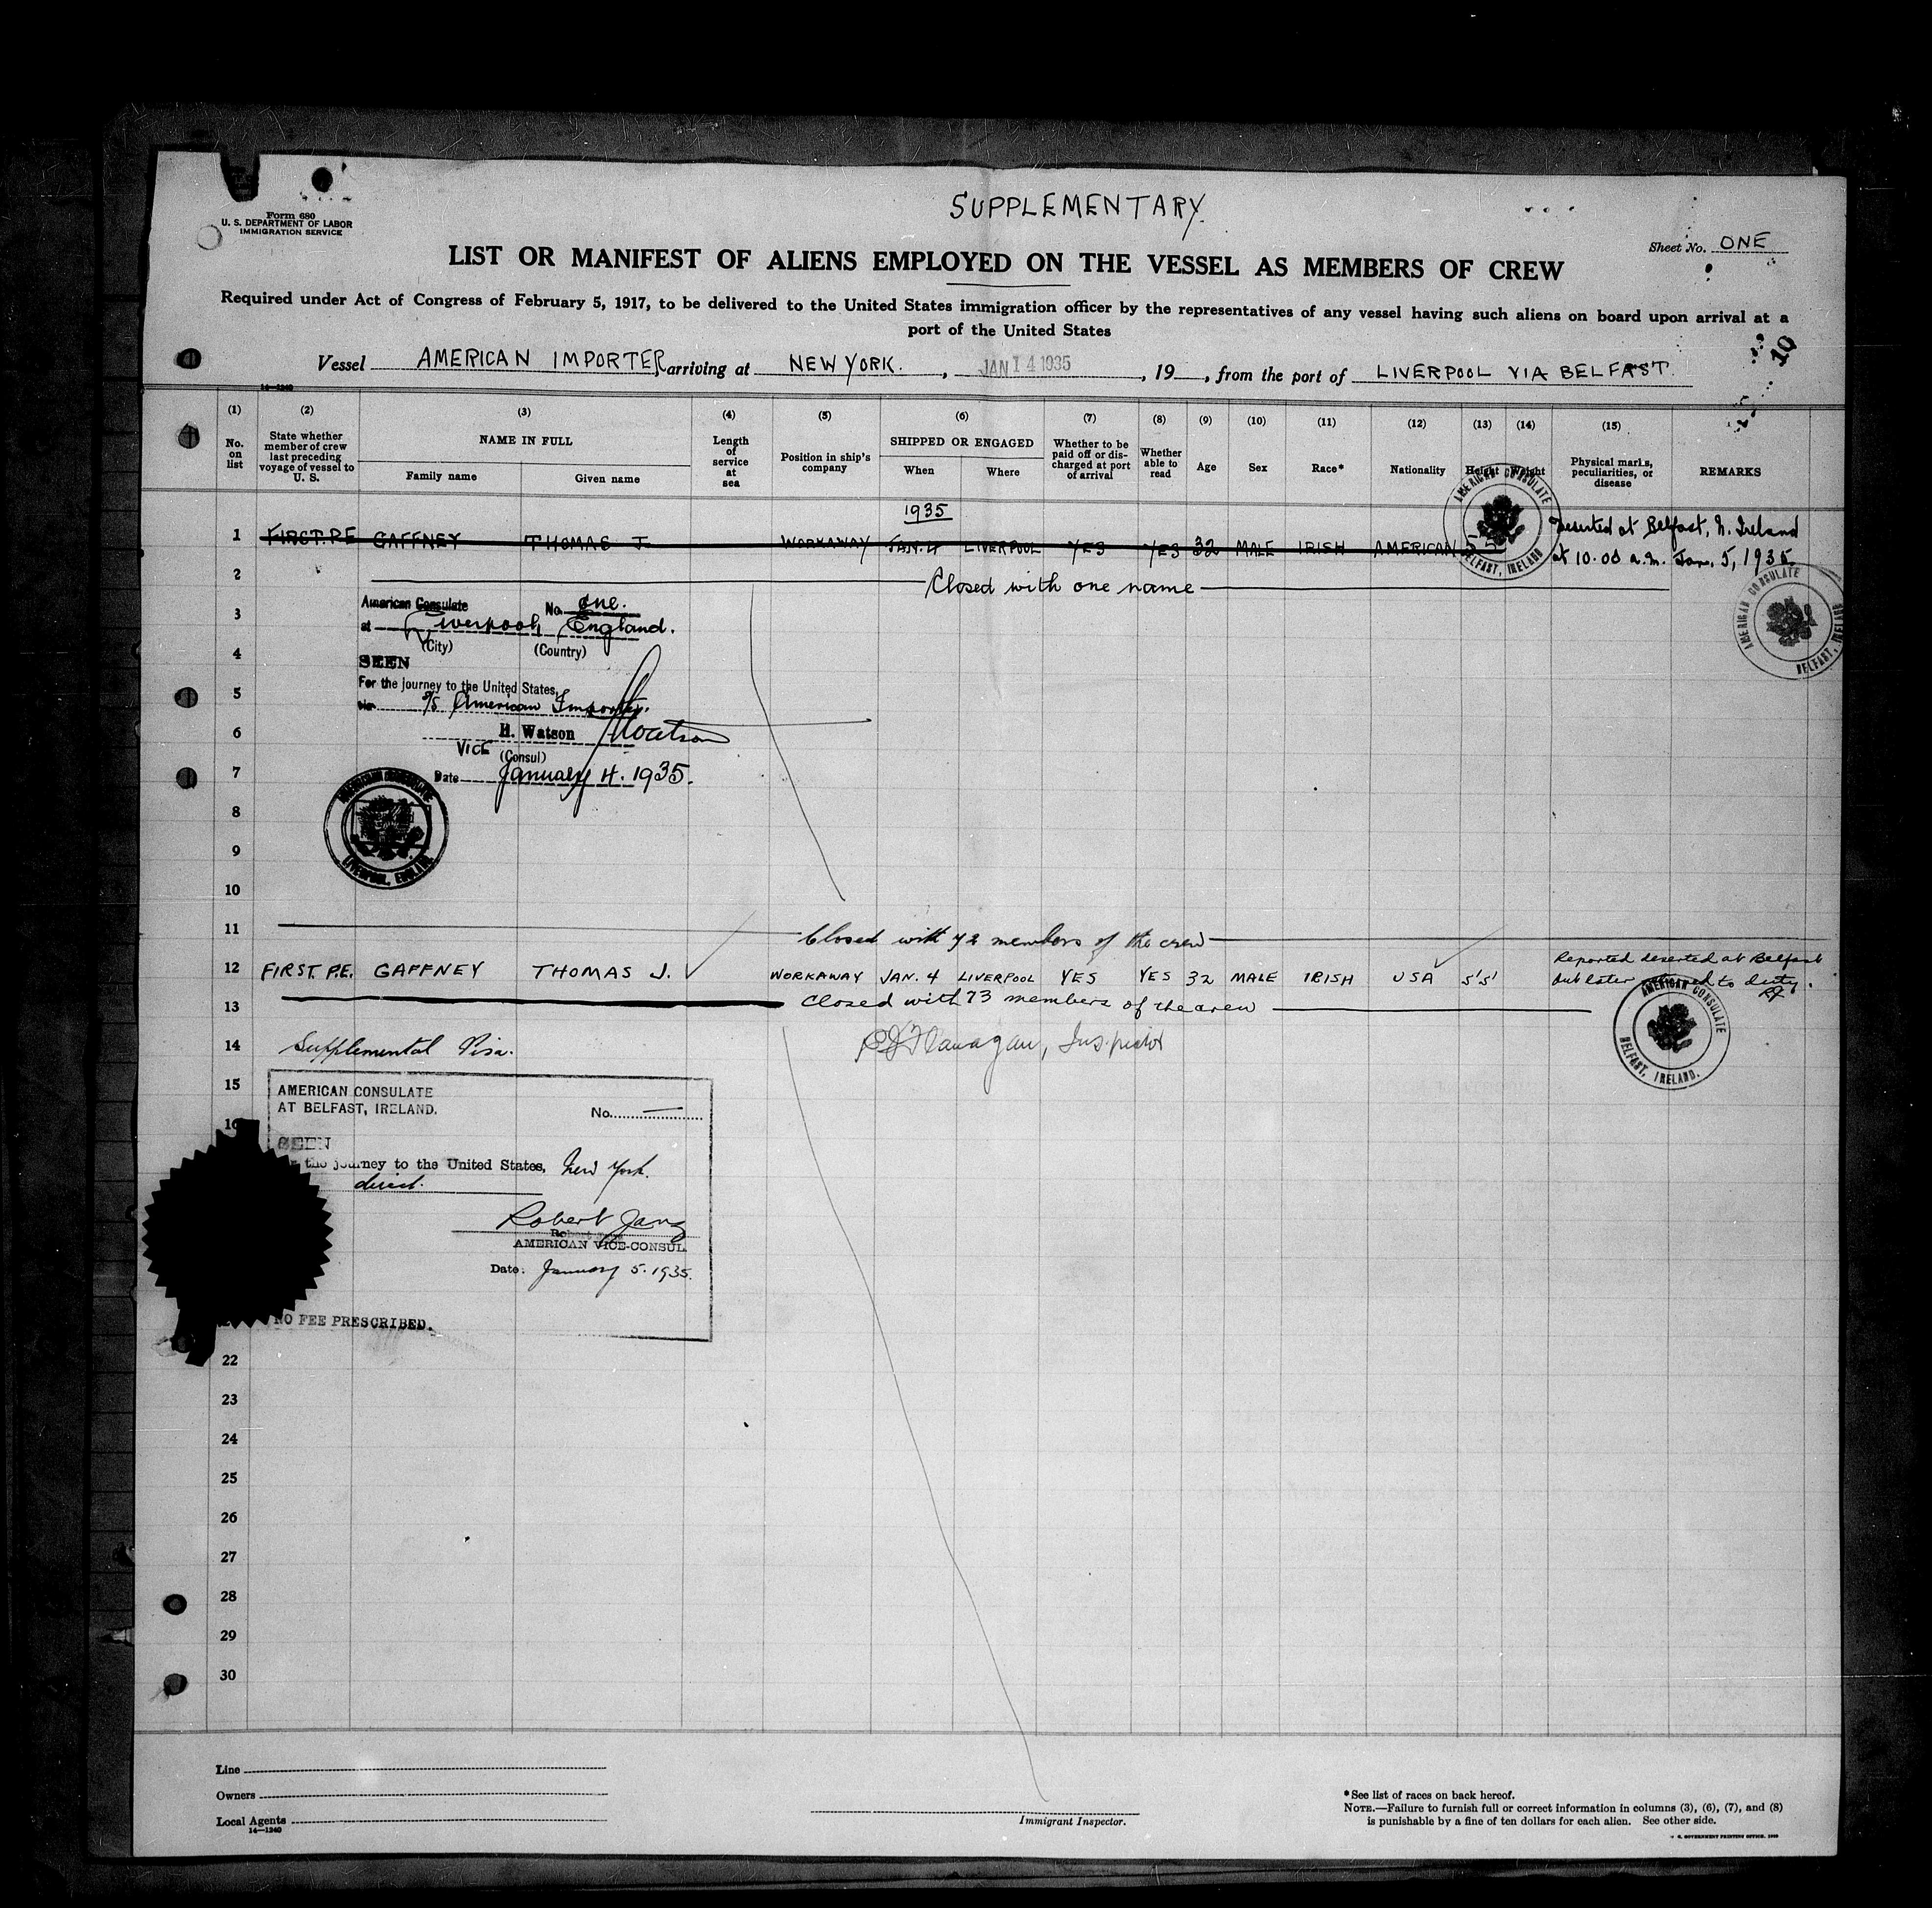 SUPPLEMENTARY.
Form 680
U. S. DEPARTMENT OF LABOR
IMMIGRATION SERVICE
Sheet No. ONE
LIST OR MANIFEST OF ALIENS EMPLOYED ON THE VESSEL AS MEMBERS OF CREW
Required under Act of Congress of February 5, 1917, to be delivered to the United States immigration officer by the representatives of any vessel having such aliens on board upon arrival at a
port of the United States
10
Vessel AMERICAN IMPORTER, arriving at NEW YORK. , JAN 14 1935 , 19 , from the port of LIVERPOOL VIA BELFAST.
14—1240
(1) (2) (3) (4) (5) (6) (7) (8) (9) (10) (11) (12) (13) (14) (15)
No. on list
State whether member of crew last preceding voyage of vessel to U. S.
NAME IN FULL
Family name
Given name
Length of service at sea
Position in ship's company
SHIPPED OR ENGAGED
When
Where
Whether to be paid off or discharged at port of arrival
Whether able to read
Age
Sex
Race*
Nationality
Height
Weight
Physical marks, peculiarities, or disease
REMARKS
1935
1 FIRST. P.E GAFFNEY THOMAS J. WORKAWAY JAN. 4 LIVERPOOL YES YES 32 MALE IRISH AMERICAN 5'5 Deserted at Belfast, N. Ireland
at 10.00 a.m. Jan. 5, 1935.
AMERICAN CONSULATE
BELFAST, IRELAND
2 Closed with one name
AMERICAN CONSULATE
BELFAST, IRELAND
American Consulate No. one.
3 at Liverpool, England.
(City) (Country)
4 SEEN
5 For the journey to the United States,
via S/S American Importer.
6 H. Watson HWatson
VICE (Consul)
7 Date January 4. 1935.
8
AMERICAN CONSULATE
LIVERPOOL, ENGLAND
9
10
11 Closed with 72 members of the crew
12 FIRST. P.E. GAFFNEY THOMAS J. WORKAWAY JAN. 4 LIVERPOOL YES YES 32 MALE IRISH USA 5'5' Reported deserted at Belfast
but later to duty.
13 Closed with 73 members of the crew
AMERICAN CONSULATE
BELFAST, IRELAND.
14 Supplemental Visa. Flanagan, Inspector
15 AMERICAN CONSULATE
AT BELFAST, IRELAND. No.
16
SEEN
the journey to the United States, New York.
direct.
Robert Janz
AMERICAN VICE-CONSUL
Date: January 5. 1935.
NO FEE PRESCRIBED.
22
23
24
25
26
27
28
29
30
Line
Owners
Local Agents
14—1240
Immigrant Inspector.
* See list of races on back hereof.
NOTE.—Failure to furnish full or correct information in columns (3), (6), (7), and (8)
is punishable by a fine of ten dollars for each alien. See other side.
GOVERNMENT PRINTING OFFICE